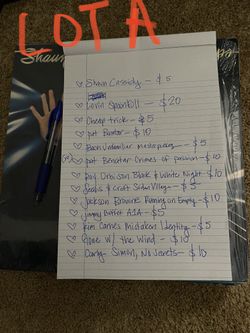 LOT A
Shaun
♡ Shaun Cassidy - $5
♡ Lovin Spoonfull - $20
♡ Cheap trick - $5
♡ pat Benatar - $10
♡ Bach Unfamiliar masterpieces - $5
♡ pat Benatar Crimes of passion - $10
♡ Roy Orbison Black & White Night - $10
♡ Seals & croft Sudan Village - $5
♡ Jackson Browne Running on Empty - $10
♡ Jimmy Buffet A1A - $5
♡ Kim Carnes Mistaken Identity - $5
♡ Gone w/ the Wind - $10
♡ Carly Simon, No Secrets - $10